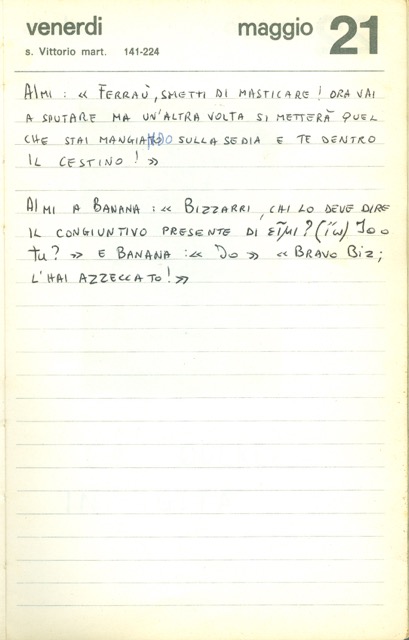 venerdi maggio 21
s. Vittorio mart. 141-224
AIMI : « FERRAÙ, SMETTI DI MASTICARE ! ORA VAI
A SPUTARE MA UN'ALTRA VOLTA SI METTERÀ QUEL
CHE STAI MANGIANDO SULLA SEDIA E TE DENTRO
IL CESTINO ! »
AIMI A BANANA : « BIZZARRI, CHI LO DEVE DIRE
IL CONGIUNTIVO PRESENTE DI εἶμι ? (ἴω) IO O
TU ? » E BANANA : « IO » « BRAVO BIZ ;
L'HAI AZZECCATO ! »